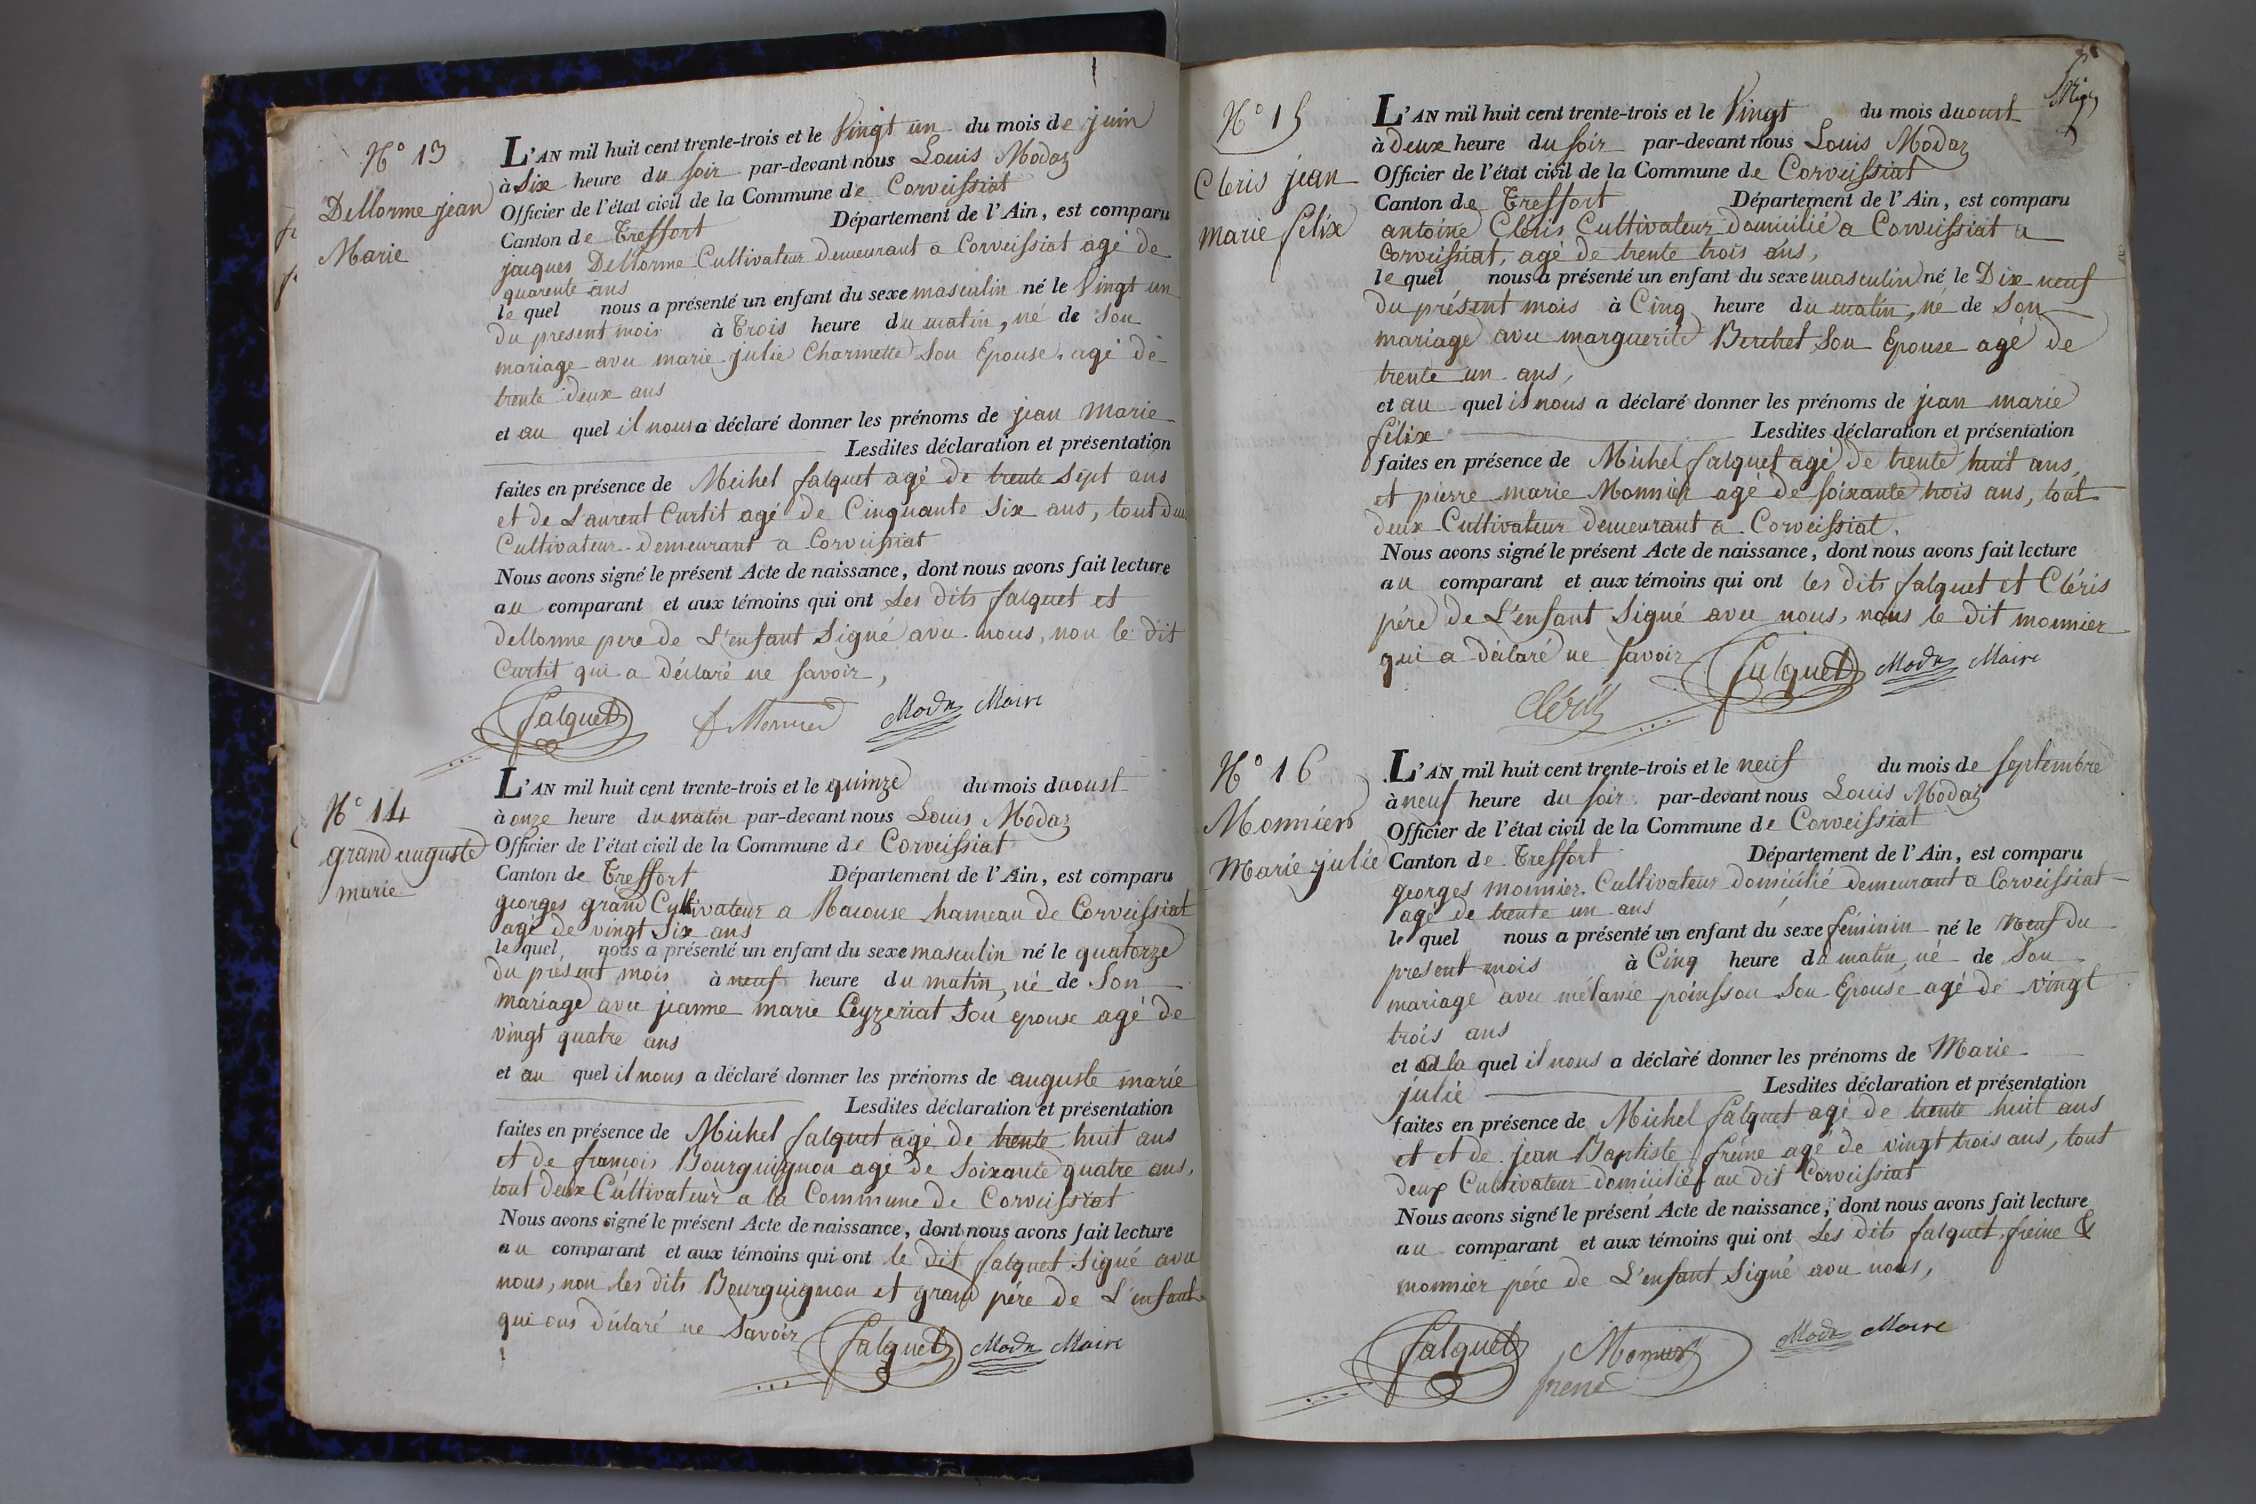 N° 13
Dellorme jean
Marie
L'AN mil huit cent trente-trois et le vingt un du mois de juin
à Six heure du soir par-devant nous Louis Modaz
Officier de l'état civil de la Commune de Corveissiat
Canton de Treffort Département de l'Ain, est comparu
jacques Dellorme Cultivateur demeurant a Corveissiat agé de
quarente ans
le quel nous a présenté un enfant du sexe masculin né le vingt un
du present mois à Trois heure du matin, né de Son
mariage avec marie julie Charmette Son Epouse, agé de
trente deux ans
et au quel il nous a déclaré donner les prénoms de jean Marie
Lesdites déclaration et présentation
faites en présence de Michel falquet agé de trente Sept ans
et de Laurent Curtit agé de Cinquante Six ans, tout deux
Cultivateur demeurant a Corveissiat
Nous avons signé le présent Acte de naissance, dont nous avons fait lecture
au comparant et aux témoins qui ont Les dits falquet et
dellorme pere de L'enfant Signé avec nous, non le dit
Curtit qui a déclaré ne savoir,
falquet Modaz Maire
N° 14
grand auguste
marie
L'AN mil huit cent trente-trois et le quinze du mois daoust
à onze heure du matin par-devant nous Louis Modaz
Officier de l'état civil de la Commune de Corveissiat
Canton de Treffort Département de l'Ain, est comparu
georges grand Cultivateur a Racouse hameau de Corveissiat
agé de vingt Six ans
le quel nous a présenté un enfant du sexe masculin né le quatorze
du présent mois à neuf heure du matin, né de Son
mariage avec jeanne marie Ceyzeriat Son epouse agé de
vingt quatre ans
et au quel il nous a déclaré donner les prénoms de auguste marie
Lesdites déclaration et présentation
faites en présence de Michel falquet agé de trente huit ans
et de françois Bourguignon agé de Soixante quatre ans,
tout deux Cultivateur a la Commune de Corveissiat
Nous avons signé le présent Acte de naissance, dont nous avons fait lecture
au comparant et aux témoins qui ont le dit falquet Signé avec
nous, non les dits Bourguignon et grand pére de L'enfant
qui ons déclaré ne Savoir
falquet Modaz Maire
N° 15
Cleris jean
marie félix
L'AN mil huit cent trente-trois et le Vingt du mois daoust
à deux heure du soir par-devant nous Louis Modaz
Officier de l'état civil de la Commune de Corveissiat
Canton de Treffort Département de l'Ain, est comparu
antoine Cléris Cultivateur domicilié a Corveissiat a
Corveissiat, agé de trente trois ans,
le quel nous a présenté un enfant du sexe masculin né le Dix neuf
du présent mois à Cinq heure du matin, né de Son
mariage avec marguerite Berchet Son Epouse agé de
trente un ans,
et au quel il nous a déclaré donner les prénoms de jean marie
félix Lesdites déclaration et présentation
faites en présence de Michel falquet agé de trente huit ans,
et pierre marie Monnier agé de soixante trois ans, tout
deux Cultivateur demeurant a Corveissiat,
Nous avons signé le présent Acte de naissance, dont nous avons fait lecture
au comparant et aux témoins qui ont les dits falquet et Cléris
pére de L'enfant Signé avec nous, nous le dit monnier
qui a déclaré ne savoir
Cléris falquet Modaz Maire
N° 16
Monnier
Marie julie
L'AN mil huit cent trente-trois et le neuf du mois de septembre
à neuf heure du soir par-devant nous Louis Modaz
Officier de l'état civil de la Commune de Corveissiat
Canton de Treffort Département de l'Ain, est comparu
georges monnier Cultivateur domicilié demeurant a Corveissiat
agé de trente un ans
le quel nous a présenté un enfant du sexe féminin né le Neuf du
present mois à Cinq heure du matin, né de Son
mariage avec mélanie poinsson Son Epouse agé de vingt
trois ans
et a la quel il nous a déclaré donner les prénoms de Marie
julie Lesdites déclaration et présentation
faites en présence de Michel falquet agé de trente huit ans
et et de jean Baptiste freine agé de vingt trois ans, tout
deux Cultivateur domicilié au dit Corveissiat
Nous avons signé le présent Acte de naissance, dont nous avons fait lecture
au comparant et aux témoins qui ont Les dits falquet, freine &
monnier pére de L'enfant Signé avec nous,
falquet Monnier Modaz Maire
frene